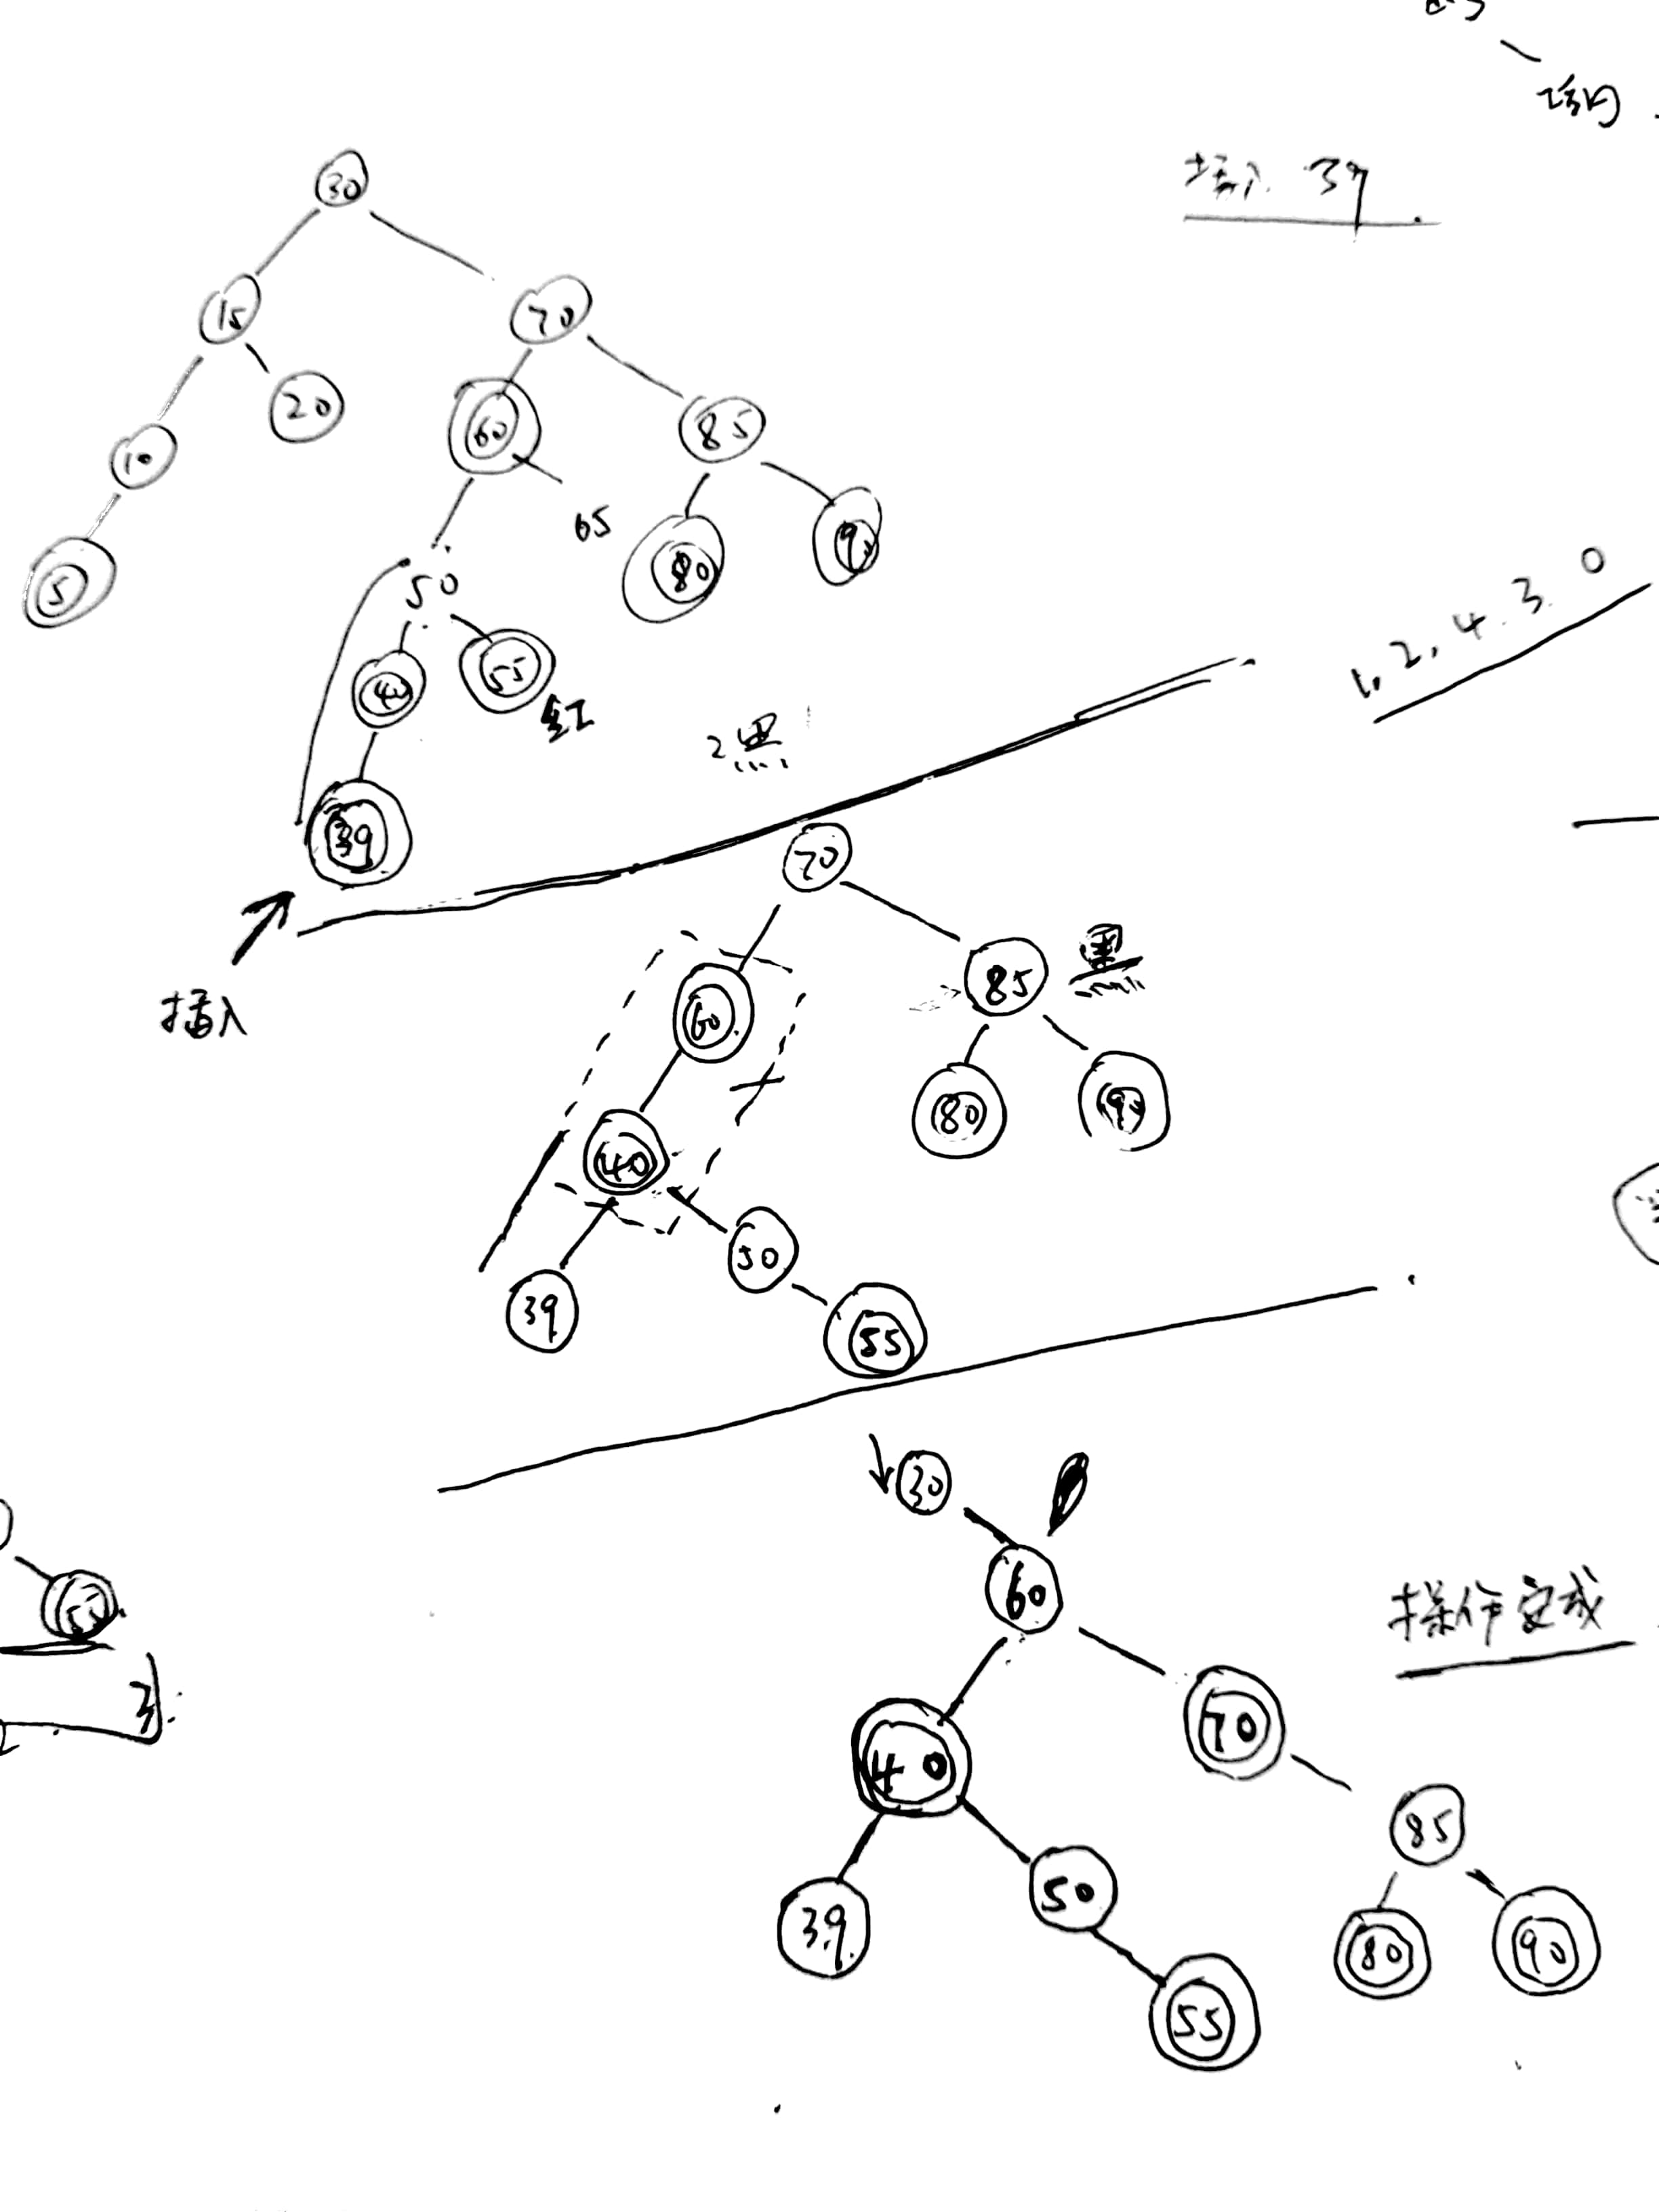 插入 39
30
15
70
20
60
85
10
65
5
80
90
50
40
55
红
39
2黑
1, 2, 4. 3. 0
插入
70
85
黑
60
80
90
40
50
39
55
30
60
操作完成
70
40
85
50
39
80
90
55